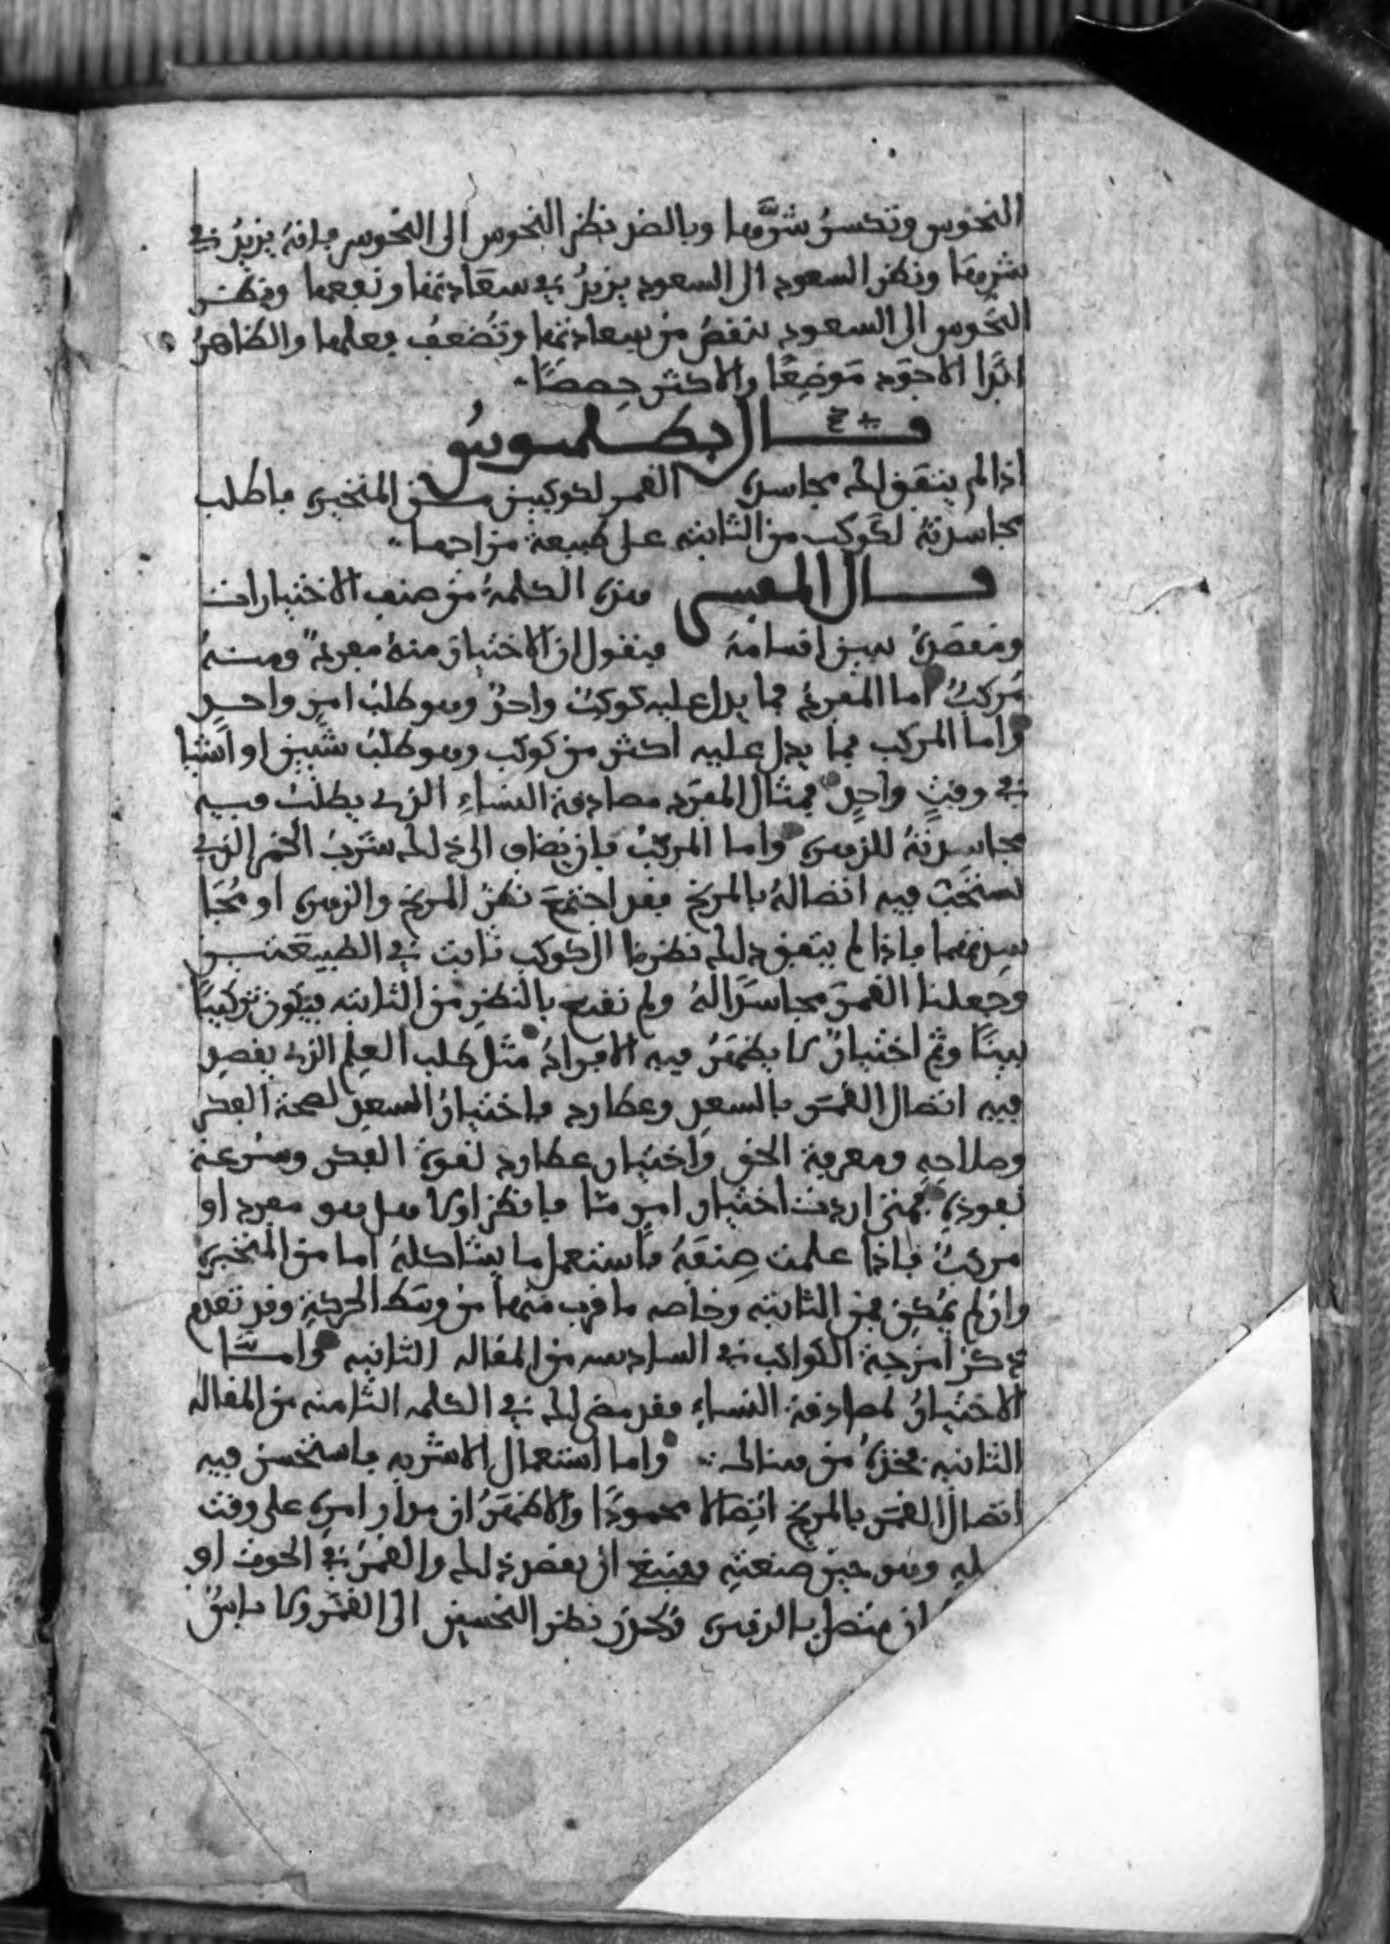 النحوس وتكسر شرها وبالضد نظر النحوس الى النحوس فانه يزيد في
شرها ونظر السعود الى السعود يزيد في سعادتها ونفعها ونظر
النحوس الى السعود تنقص من سعادتها وتضعف فعلها والظاهر
ابدا الاجود موضعا والاكثر حصصا
قال بطلميوس
اذا لم يتفق لك مجاسدة القمر لكوكبين من المتحيرة فاطلب
مجاسدته لكوكب من الثابته على طبيعة مزاجهما
قال المفسر هذه الكلمة من صنف الاختيارات
ونقصد تبيين اقسامه فنقول ان الاختيار منه مفرد ومنه
مركب اما المفرد فما يدل عليه كوكب واحد وهو طلب امر واحد
واما المركب فما يدل عليه اكثر من كوكب وهو طلب شيين او اشيا
في وقت واحد فمثال المفرد مصادقة النساء الذي يطلب فيه
مجاسدته للزهرة واما المركب فان يضاف الى ذلك شرب الخمر الذي
تستحب فيه اتصاله بالمريخ فقد اجتمع نظر المريخ والزهرة او مجا
سدتهما فاذا لم يتفق ذلك نظرنا الى كوكب ثابت في الطبيعتين
وجعلنا القمر مجاسدا له ولم نقنع بالنظر من الثابته فيكون تركيبا
بينا وثم اختيار لا يظهر فيه الافراد مثل طلب العلم الذي يقصد
فيه اتصال القمر بالسعد وعطارد فاختيار السعد لصحة الفكر
وصلاحه ومعرفة الحق واختيار عطارد لقوة الفكر وسرعة
نفوذه فمتى اردت اختيار امر ما فانظر اولا هل هو مفرد او
مركب فاذا علمت صنفه فاستعمل ما يشاكله اما من المتحيرة
وان لم يمكن فمن الثابته وخاصه ما قرب منها من وسط الحركة وقد تقدم
ذكر امزجة الكواكب في السادسه من المقاله الثانيه واما
الاختيار لمصادقة النساء فقد مضى لك في الكلمه الثامنه من المقاله
الثانيه فخذه من هنالك واما استعمال الاشربه فاستحسن فيه
اتصال القمر بالمريخ اتصالا محمودا والاظهر ان مدار امره على وقت
له وهو حين صنعته وينبغي ان يقصد ذلك والقمر في الحوت او
ان متصل بالزهرة وتحذر نظر النحسين الى القمر ولا باس